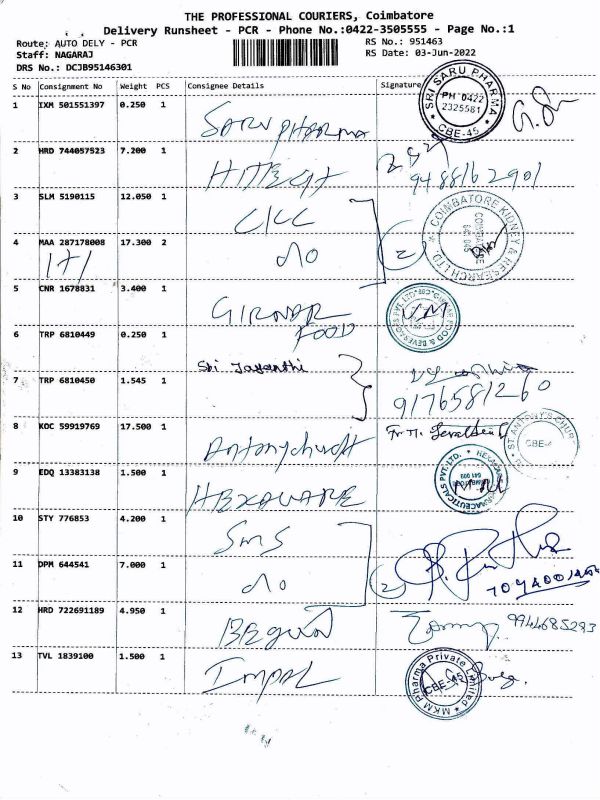 THE PROFESSIONAL COURIERS, Coimbatore
Delivery Runsheet - PCR - Phone No.:0422-3505555 - Page No.:1
Route: AUTO DELY - PCR RS No.: 951463
Staff: NAGARAJ RS Date: 03-Jun-2022
DRS No.: DCJB95146301
S No Consignment No Weight PCS Consignee Details Signature
1 IXM 501551397 0.250 1
SARU PHARMA
SRI SARU PHARMA PH 0422 2325581 CBE-45
2 HRD 744057523 7.200 1
HITECH 9488162901
3 SLM 5190115 12.050 1
CKC
COIMBATORE KIDNEY & RESEARCH LTD. COIMBATORE 641 045
4 MAA 287178008 17.300 2
1+1 do 2
5 CNR 1678831 3.400 1
GIRNAR FOOD VM
6 TRP 6810449 0.250 1
Sri Jayanthi
7 TRP 6810450 1.545 1
9176581260
8 KOC 59919769 17.500 1
Antonychurch
ST. ANTONY'S CHURCH CBE-4
9 EDQ 13383138 1.500 1
HEXAWARE
10 STY 776853 4.200 1
SMS
11 DPM 644541 7.000 1
do 2
12 HRD 722691189 4.950 1
9944685293
13 TVL 1839100 1.500 1
Impal
MKM Pharma Private Limited CBE-45